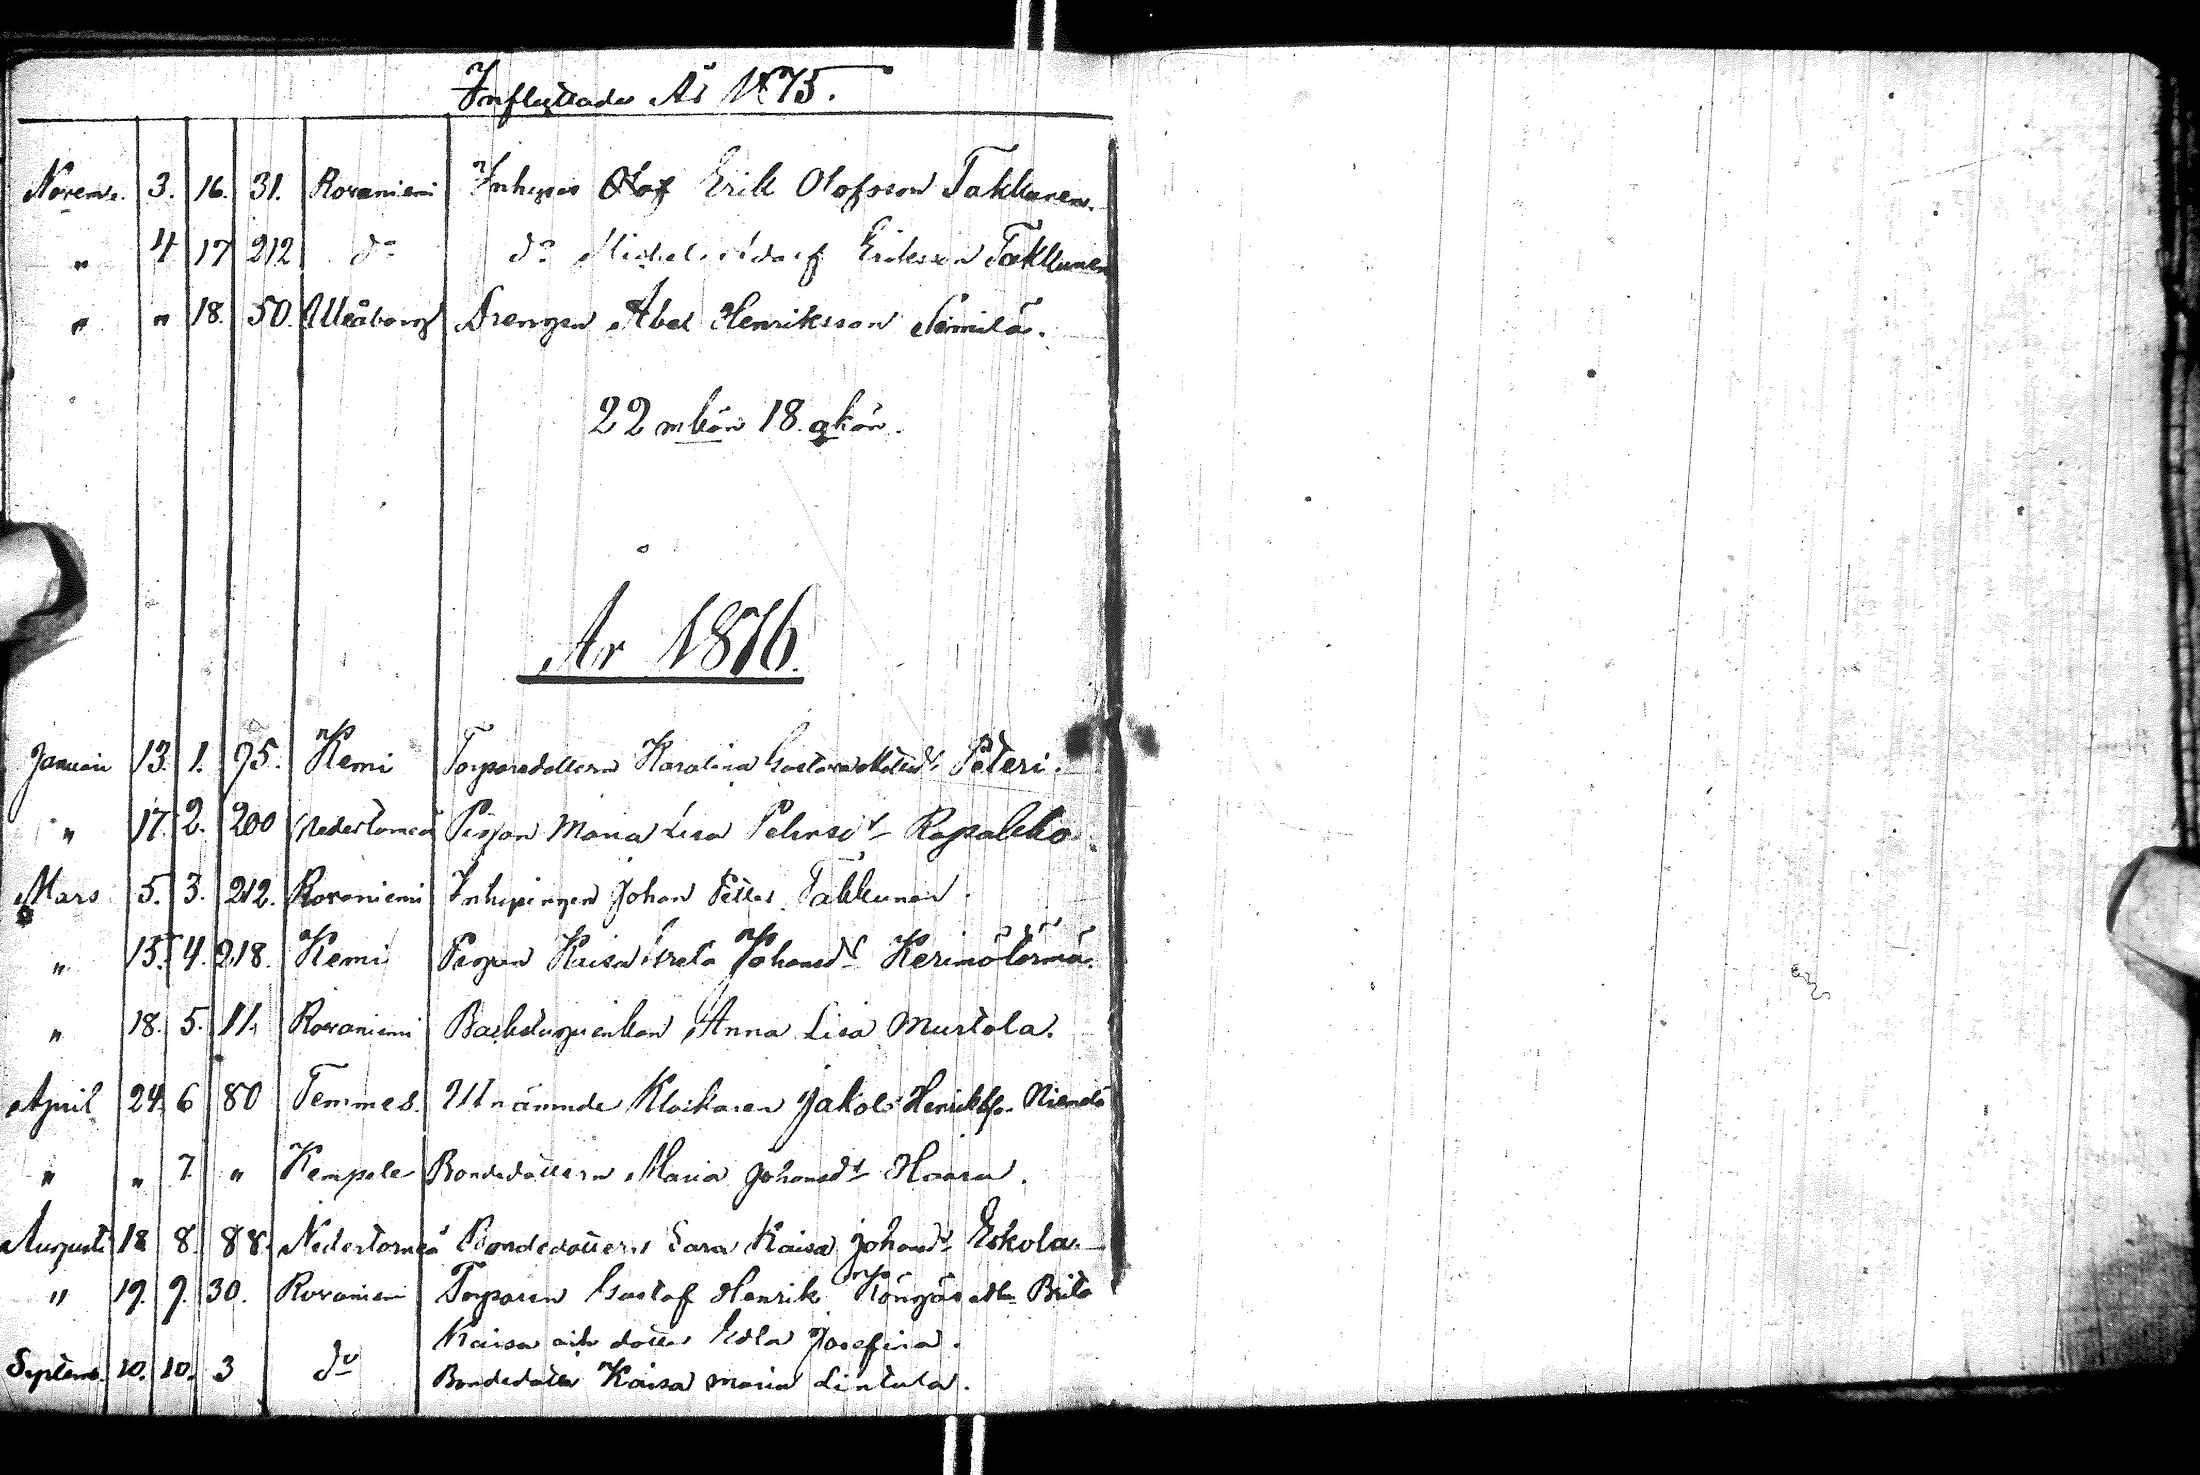 Inflyttade År 1875.
Novem. 3. 16. 31. Rovaniemi Inhyses Olof Erik Olofsson Takkunen.
" 4 17 212 do do Michel Adolf Eriksson Takkunen
" " 18. 50. Uleåborg Drengen Abel Henriksson Simila.
22 mkön 18. qkön.
År 1876.
Januari 13. 1. 95. Kemi Torparedottern Karolina Peteri.
" 17. 2. 200 Nedertorneå Pigan Maria Lisa Rapakko.
Mars 5. 3. 212. Rovaniemi Inhysingen Johan Petter Takkunen.
" 15. 4. 218. Kemi Pigan Kaisa Greta Johansdr Keinotörmä.
" 18. 5. 11. Rovaniemi Backstuguenkan Anna Lisa Murtola.
April 24. 6 80 Temmes. Utnämnde Klockaren Jakob Henriksso.
" " 7. " Kempele Bondedottern Maria Johansdr Haara.
Augusti 18 8. 88. Nedertorneå Bondedottern Sara Kaisa Johansdr Eskola.
" 19. 9. 30. Rovaniemi Torparen Gustaf Henrik Köngäs Brita
Kaisa och dotter Edla Josefina.
Septemb. 10. 10. 3 do Bondedotter Kaisa Maria Lintula.